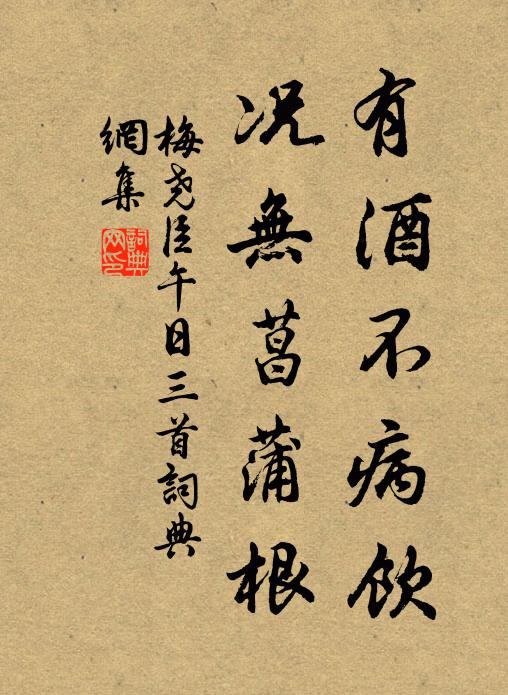 有酒不病飲
況無菖蒲根
梅堯臣午日三首詞典
網集
詞典
網印